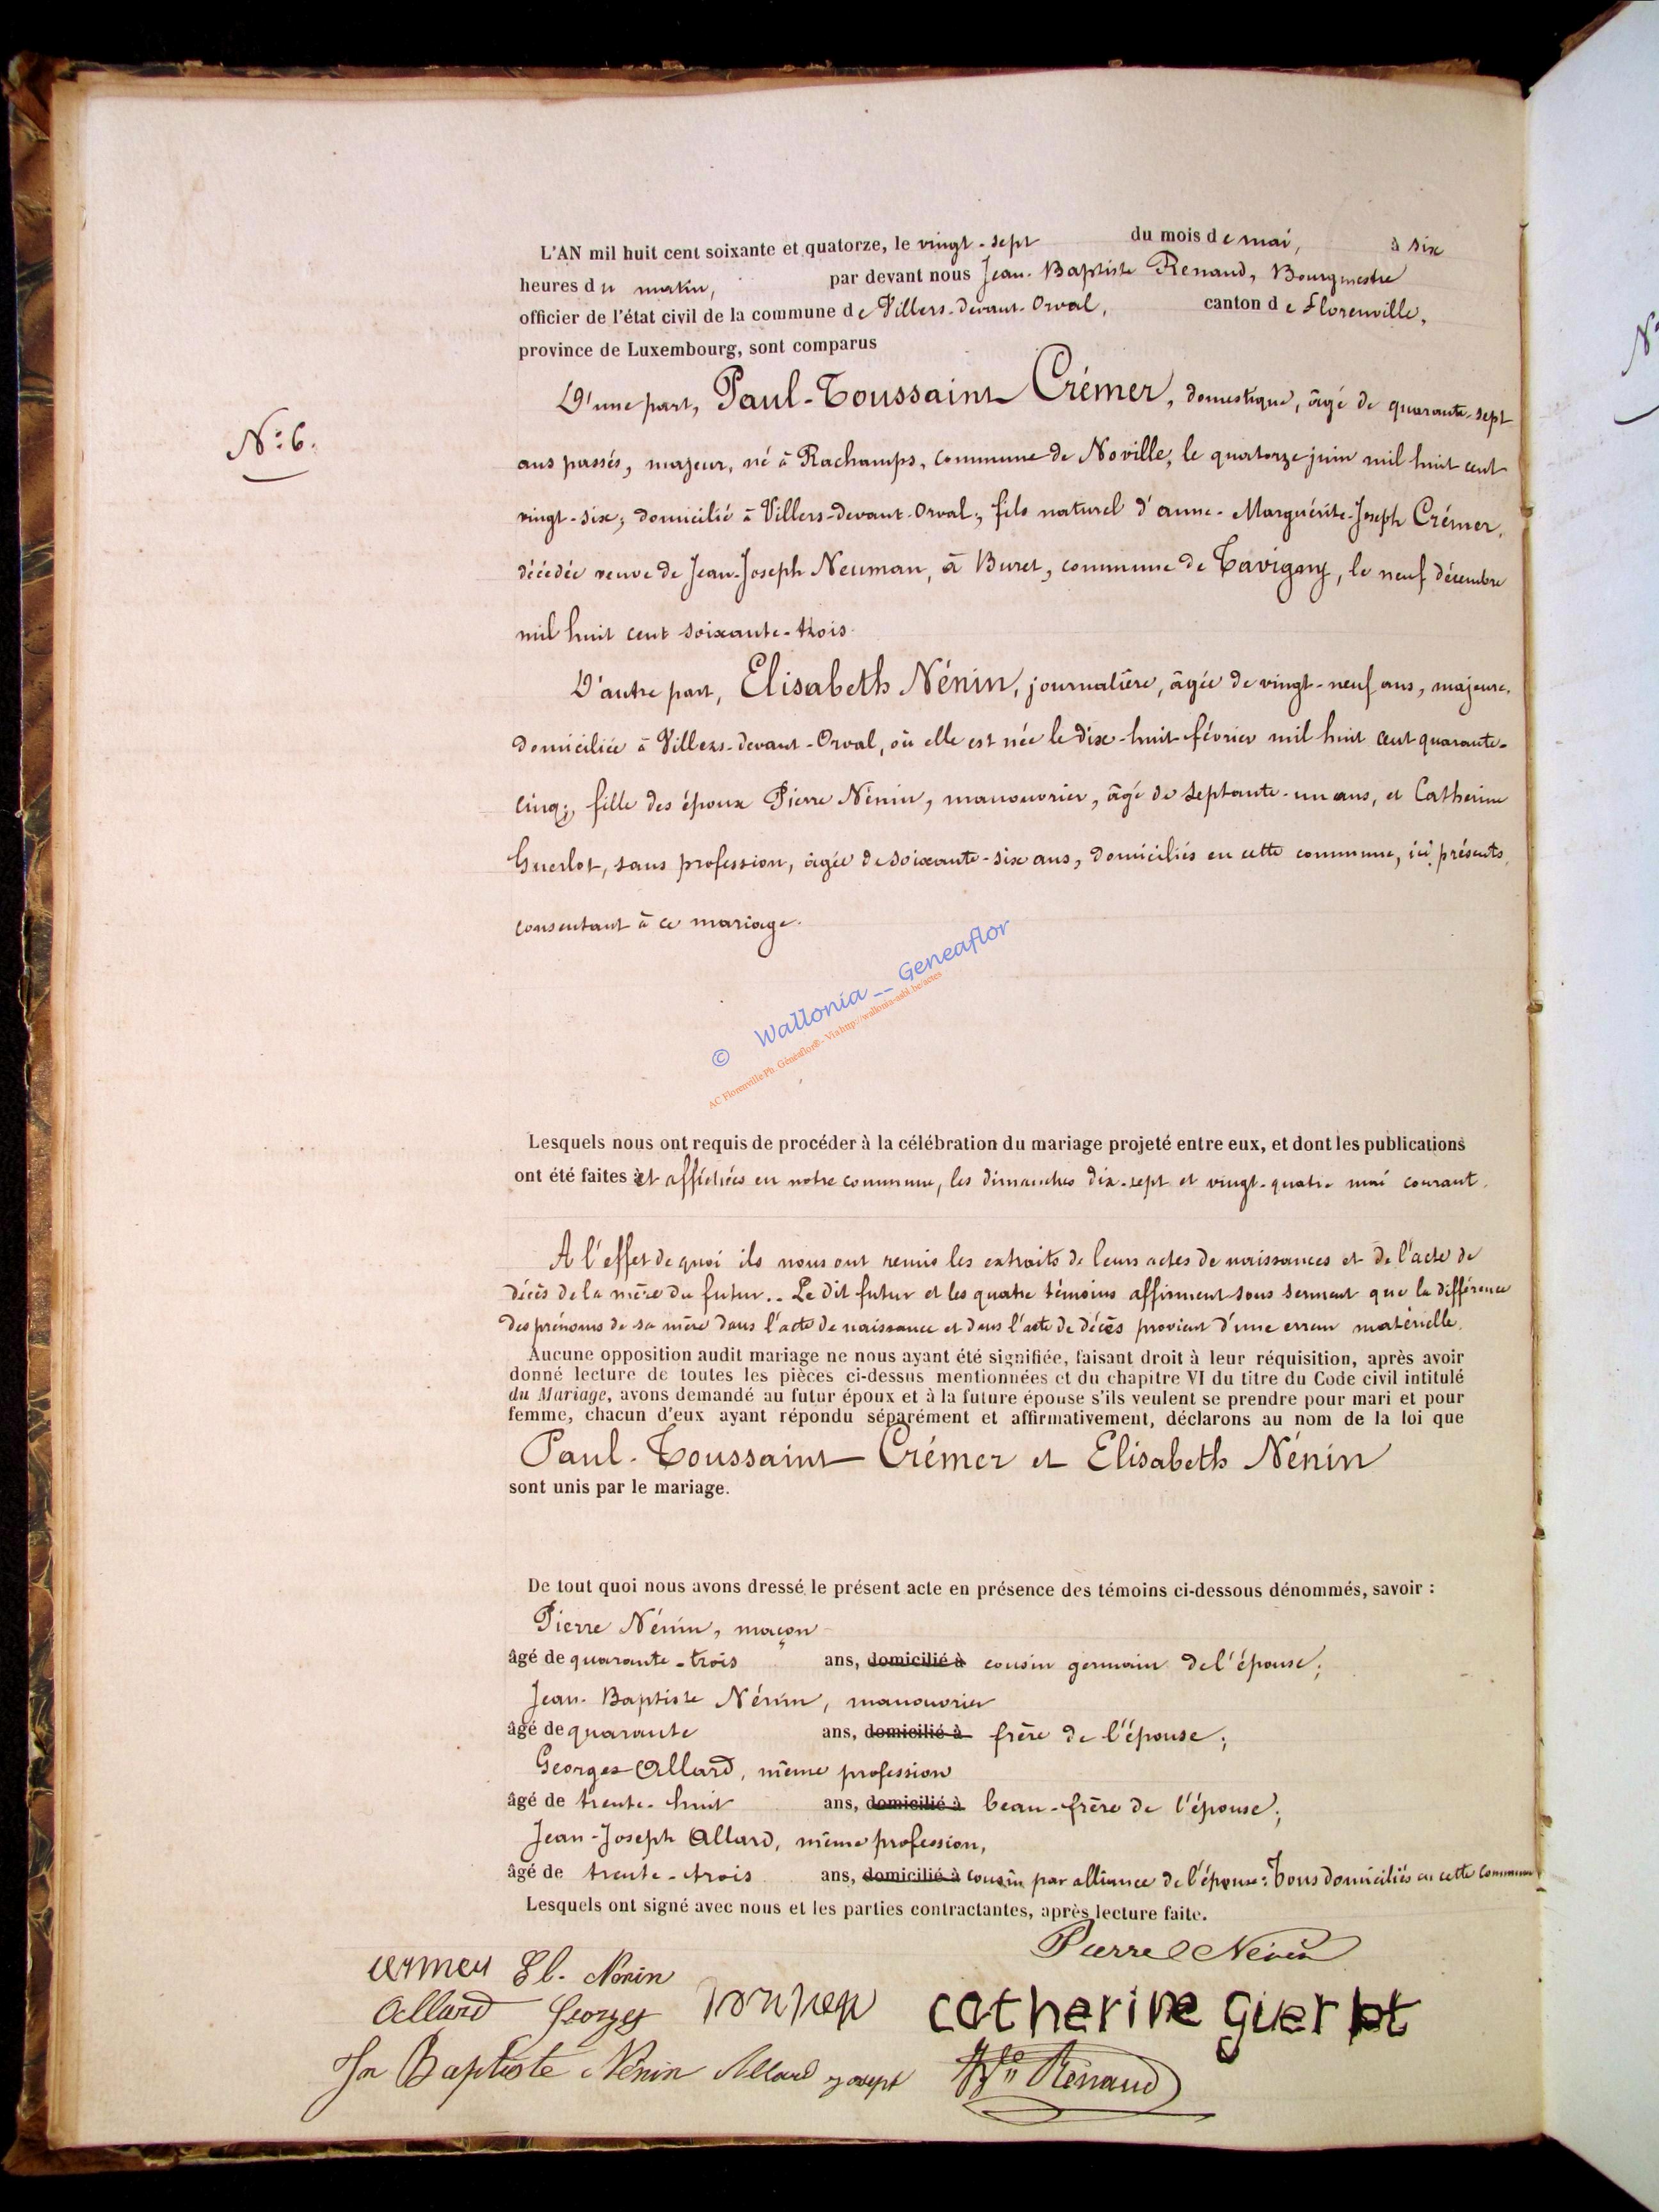 L'AN mil huit cent soixante et quatorze, le vingt-sept du mois de mai, à six
heures du matin, par devant nous Jean-Baptiste Renaud, Bourgmestre
officier de l'état civil de la commune de Villers-devant-Orval, canton de Florenville,
province de Luxembourg, sont comparus
N:º 6.
D'une part, Paul-Toussaint Crémer, domestique, âgé de quarante-sept
ans passés, majeur, né à Rachamps, commune de Noville, le quatorze juin mil huit cent
vingt-six; domicilié à Villers-devant-Orval; fils naturel d'anne-Marguérite-Joseph Crémer,
décédée veuve de Jean-Joseph Neuman, à Buret, commune de Tavigny, le neuf décembre
mil huit cent soixante-trois.
D'autre part, Elisabeth Nénin, journalière, âgée de vingt-neuf ans, majeure,
domiciliée à Villers-devant-Orval, où elle est née le dix-huit février mil huit cent quarante-
cinq; fille des époux Pierre Nénin, manouvrier, âgé de septante-un ans, et Catherine
Guerlot, sans profession, âgée de soixante-six ans, domiciliés en cette commune, ici présents,
consentant à ce mariage.
© Wallonia -- Geneaflor
AC Florenville Ph. Généaflor® - Via http://wallonia-asbl.be/actes
Lesquels nous ont requis de procéder à la célébration du mariage projeté entre eux, et dont les publications
ont été faites et affichées en notre commune, les dimanches dix-sept et vingt-quatre mai courant.
A l'effet de quoi ils nous ont remis les extraits de leurs actes de naissances et de l'acte de
décès de la mère du futur.. Le dit futur et les quatre témoins affirment sous serment que la différence
des prénoms de sa mère dans l'acte de naissance et dans l'acte de décès provient d'une erreur matérielle.
Aucune opposition audit mariage ne nous ayant été signifiée, faisant droit à leur réquisition, après avoir
donné lecture de toutes les pièces ci-dessus mentionnées et du chapitre VI du titre du Code civil intitulé
du Mariage, avons demandé au futur époux et à la future épouse s'ils veulent se prendre pour mari et pour
femme, chacun d'eux ayant répondu séparément et affirmativement, déclarons au nom de la loi que
Paul-Toussaint Crémer et Elisabeth Nénin
sont unis par le mariage.
De tout quoi nous avons dressé le présent acte en présence des témoins ci-dessous dénommés, savoir :
Pierre Nénin, maçon
âgé de quarante-trois ans, domicilié à cousin germain de l'épouse;
Jean-Baptiste Nénin, manouvrier
âgé de quarante ans, domicilié à frère de l'épouse;
Georges Allard, même profession
âgé de trente-huit ans, domicilié à beau-frère de l'épouse;
Jean-Joseph Allard, même profession,
âgé de trente-trois ans, domicilié à cousin par alliance de l'épouse: Tous domiciliés en cette commune
Lesquels ont signé avec nous et les parties contractantes, après lecture faite.
Pierre Nénin
El. Nénin
Allard Georges
catherine guerlot
Jn Baptiste Nénin Allard joseph
Renaud